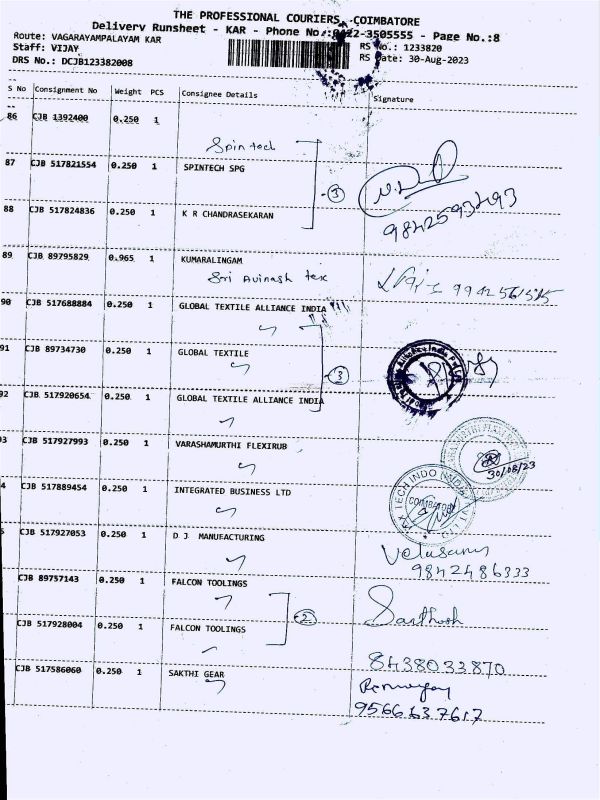 THE PROFESSIONAL COURIERS, COIMBATORE
Delivery Runsheet - KAR - Phone No.:0422-3505555 - Page No.:8
Route: VAGARAYAMPALAYAM KAR RS No.: 1233820
Staff: VIJAY RS Date: 30-Aug-2023
DRS No.: DCJB123382008
S No Consignment No Weight PCS Consignee Details Signature
86 CJB 1392400 0.250 1
Spintech
87 CJB 517821554 0.250 1 SPINTECH SPG
3
9842593493
88 CJB 517824836 0.250 1 K R CHANDRASEKARAN
89 CJB 89795829 0.965 1 KUMARALINGAM
Sri Avinash tex
90 CJB 517688884 0.250 1 GLOBAL TEXTILE ALLIANCE INDIA
91 CJB 89734730 0.250 1 GLOBAL TEXTILE
3
92 CJB 517920654 0.250 1 GLOBAL TEXTILE ALLIANCE INDIA
3 CJB 517927993 0.250 1 VARASHAMURTHI FLEXIRUB
30/08/23
4 CJB 517889454 0.250 1 INTEGRATED BUSINESS LTD
COIMBATORE
CJB 517927053 0.250 1 D J MANUFACTURING
Velusamy
9842486333
CJB 89757143 0.250 1 FALCON TOOLINGS
2
Santhosh
CJB 517928004 0.250 1 FALCON TOOLINGS
8438033870
CJB 517586060 0.250 1 SAKTHI GEAR
9566637617